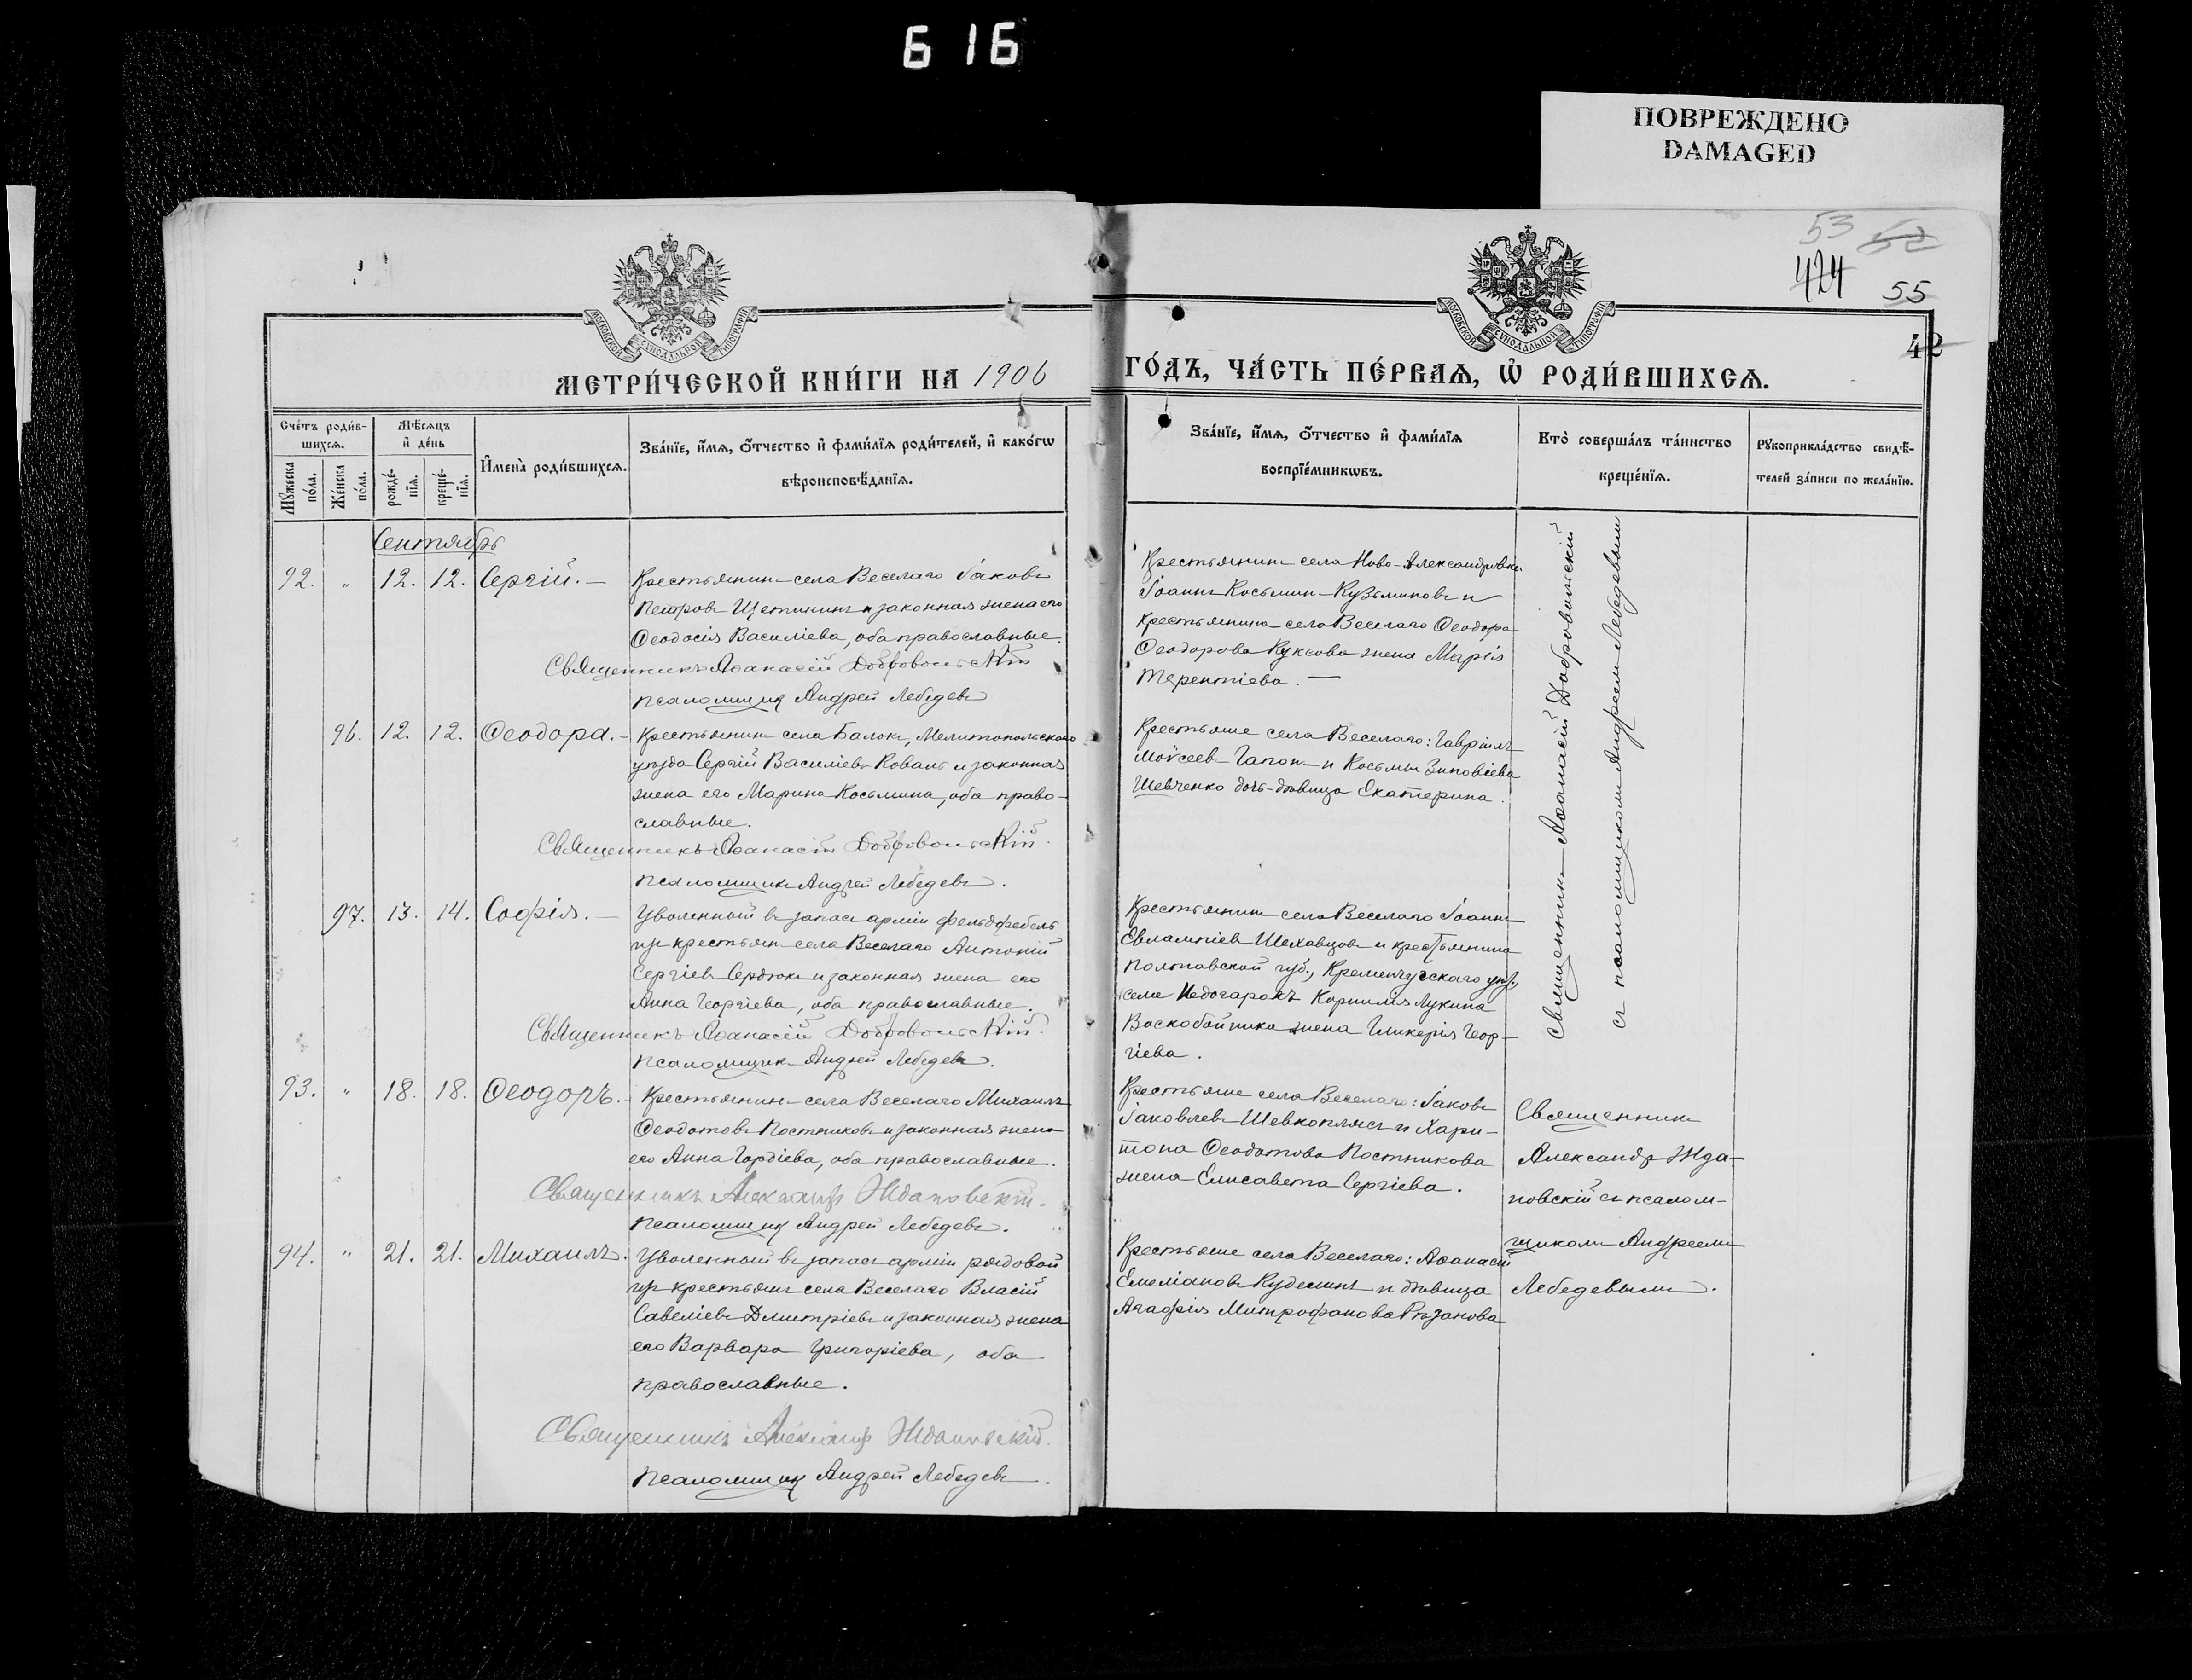 616
ПОВРЕЖДЕНО
DAMAGED
53 52
424 55
42
МОСКОВСКОЙ СѴНОДАЛЬНОЙ ТИПОГРАФІИ
МОСКОВСКОЙ СѴНОДАЛЬНОЙ ТИПОГРАФІИ
МЕТРИ́ЧЕСКОЙ КНИ́ГИ НА 1906 ГО́ДЪ, ЧА́СТЬ ПЕ́РВАЯ, Ѡ҆ РОДИ́ВШИХСЯ.
Сче́тъ роди́в-
шихся.
Му́жеска
по́ла.
Же́нска
по́ла.
Мѣ́сяцъ
и҆ де́нь
рожде́-
нїя.
креще́-
нїя.
И҆мена̀ роди́вшихся.
Зва́нїе, и҆́мя, ѻ҆́тчество и҆ фами́лїя роди́телей, и҆ како́гѡ
вѣроисповѣ́данїя.
Зва́нїе, и҆́мя, ѻ҆́тчество и҆ фами́лїя
воспрїе́мникѡвъ.
Кто̀ соверша́лъ та́инство
креще́нїя.
Рꙋкоприкла́дство свидѣ́-
телей за́писи по жела́нїю.
Сентябрь
92. „ 12. 12. Сергій. —
Крестьянинъ села Веселаго Іаковъ
Петровъ Щетининъ и законная жена его
Ѳеодосія Василіева, оба православные.
Священникъ Аѳанасій Добровольскій
Псаломщикъ Андрей Лебедевъ
Крестьянинъ села Ново-Александровки
Іоаннъ Косьминъ Кузьминовъ и
крестьянина села Веселаго Ѳеодора
Ѳеодорова Куксова жена Марія
Терентіева. —
96. 12. 12. Ѳеодора. —
Крестьянинъ села Балокъ, Мелитопольскаго
уѣзда Сергій Василіевъ Коваль и законная
жена его Марина Косьмина, оба право-
славные.
Священникъ Аѳанасій Добровольскій.
Псаломщикъ Андрей Лебедевъ.
Крестьяне села Веселаго: Гавріилъ
Моѵсеевъ Гапонъ и Косьмы Зиновіева
Шевченко дочь-дѣвица Екатерина.
97. 13. 14. Софія. —
Уволенный въ запасъ арміи фельдфебель
изъ крестьянъ села Веселаго Антоній
Сергіевъ Сердюкъ и законная жена его
Анна Георгіева, оба православные.
Священникъ Аѳанасій Добровольскій.
Псаломщикъ Андрей Лебедевъ.
Крестьянинъ села Веселаго Іоаннъ
Евлампіевъ Шеховцовъ и крестьянина
Полтавской губ., Кременчугскаго уѣз.,
села Недогарокъ Корнилія Лукина
Воскобойника жена Гликерія Геор-
гіева.
Священникъ Аѳанасій Добровольскій
съ псаломщикомъ Андреемъ Лебедевымъ
93. „ 18. 18. Ѳеодоръ. —
Крестьянинъ села Веселаго Михаилъ
Ѳеодотовъ Постниковъ и законная жена
его Анна Гордіева, оба православные.
Священникъ Александръ Ждановскій.
Псаломщикъ Андрей Лебедевъ.
Крестьяне села Веселаго: Іаковъ
Іаковлевъ Шевкоплясъ и Хари-
тона Ѳеодотова Постникова
жена Елисавета Сергіева.
Священникъ
Александръ Жда-
новскій съ псалом-
щикомъ Андреемъ
Лебедевымъ.
94. „ 21. 21. Михаилъ.
Уволенный въ запасъ арміи рядовой
изъ крестьянъ села Веселаго Власій
Савеліевъ Димитріевъ и законная жена
его Варвара Григоріева, оба
православные.
Священникъ Александръ Ждановскій.
Псаломщикъ Андрей Лебедевъ.
Крестьяне села Веселаго: Аѳанасій
Емеліановъ Куделинъ и дѣвица
Агафія Митрофанова Рѣзанова